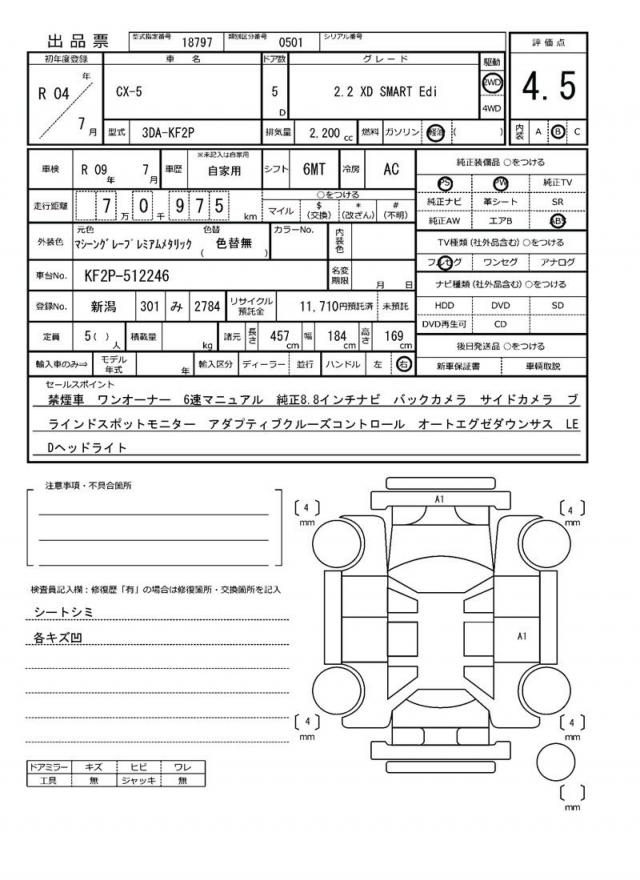 出品票 型式指定番号 18797 類別区分番号 0501 シリアル番号
初年度登録 車名 ドア数 グレード 駆動 評価点
R 04 年 7 月 CX-5 5 D 2.2 XD SMART Edi 2WD 4WD 4.5
型式 3DA-KF2P 排気量 2,200 cc 燃料 ガソリン 軽油 ( ) 内装 A B C
車検 R 09 年 7 月 車歴 ※未記入は自家用 自家用 シフト 6MT 冷房 AC 純正装備品 ○をつける
PS PW 純正TV
走行距離 7 万 0 千 9 7 5 km ○をつける マイル $ (交換) * (改ざん) # (不明) 純正ナビ 革シート SR
純正AW エアB ABS
外装色 元色 マシーングレープレミアムメタリック 色替 ( 色替無 ) カラーNo. 内装色 TV種類 (社外品含む) ○をつける
フルセグ ワンセグ アナログ
車台No. KF2P-512246 名変期限 月 日 ナビ種類 (社外品含む) ○をつける
登録No. 新潟 301 み 2784 リサイクル預託金 11,710円預託済 未預託 HDD DVD SD
DVD再生可 CD
定員 5( ) 人 積載量 kg 諸元 長さ 457 cm 幅 184 cm 高さ 169 cm 後日発送品 ○をつける
輸入車のみ⇒ モデル年式 年 輸入区分 ディーラー 並行 ハンドル 左 右 新車保証書 車輌取説
セールスポイント
禁煙車 ワンオーナー 6速マニュアル 純正8.8インチナビ バックカメラ サイドカメラ ブ
ラインドスポットモニター アダプティブクルーズコントロール オートエグゼダウンサス LE
Dヘッドライト
注意事項・不具合箇所
検査員記入欄：修復歴「有」の場合は修復箇所・交換箇所を記入
シートシミ
各キズ凹
ドアミラー キズ ヒビ ワレ
工具 無 ジャッキ 無
A1
[ 4 ] mm [ 4 ] mm
A1
[ 4 ] mm [ 4 ] mm
[ ] mm